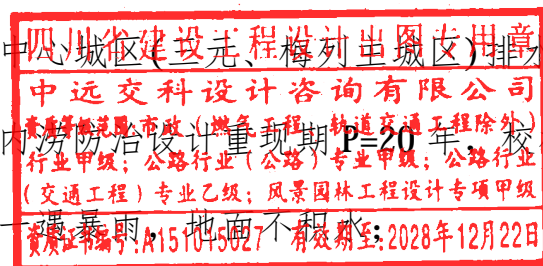 四川省建设工程设计出图专用章
中心城区(三元、梅列主城区)排水
中远交科设计咨询有限公司
资质等级范围:市政（燃气工程、轨道交通工程除外）
内涝防治设计重现期 P=20 年，校
行业甲级；公路行业（公路）专业甲级；公路行业
（交通工程）专业乙级；风景园林工程设计专项甲级
一强暴雨，地面不积水；
资质证书编号:A151015027 有效期至:2028年12月22日